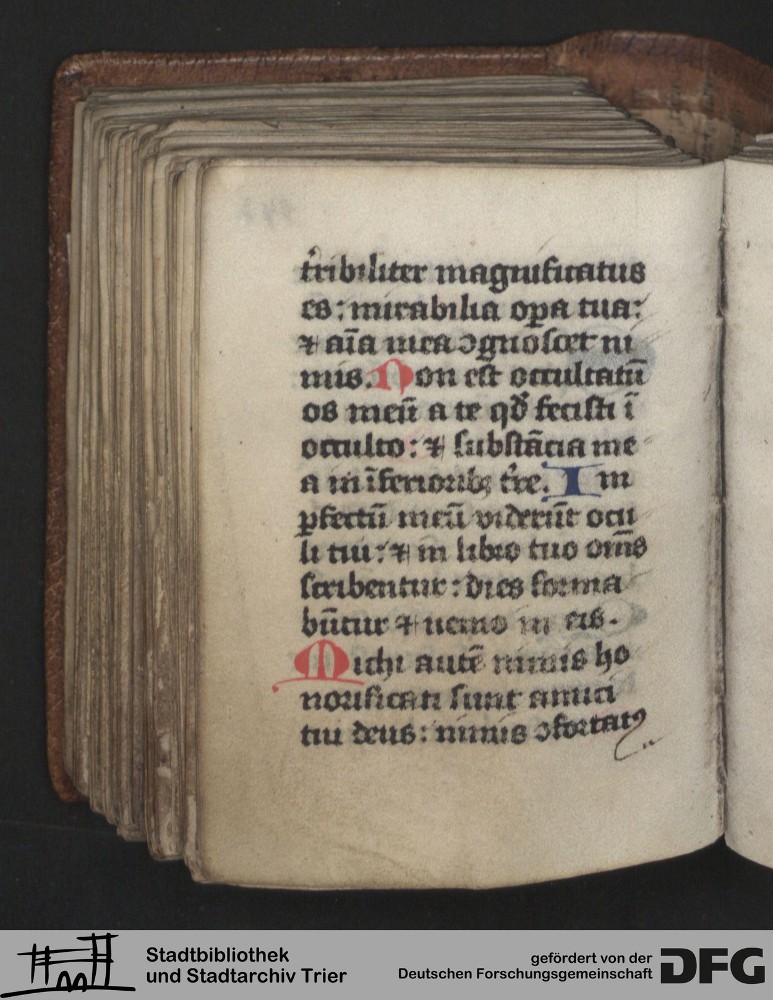 t̾ribiliter magnificatus
es : mirabilia op̱a tua :
⁊ aīa mea ꝯgnoscet ni
mis. Non est occultatū
os meū a te qđ fecisti ī
occulto : ⁊ substācia me
a in īferioribꝫ t̾re. Im
ꝑfectū meū viderūt ocu
li tui : ⁊ in libro tuo om̄s
scribentur : dies forma
būtur ⁊ nemo in eis.
Michi autē nimis ho
norificati sunt amici
tui deus : nimis ꝯfortatꝰ
Stadtbibliothek
und Stadtarchiv Trier
gefördert von der
Deutschen Forschungsgemeinschaft
DFG